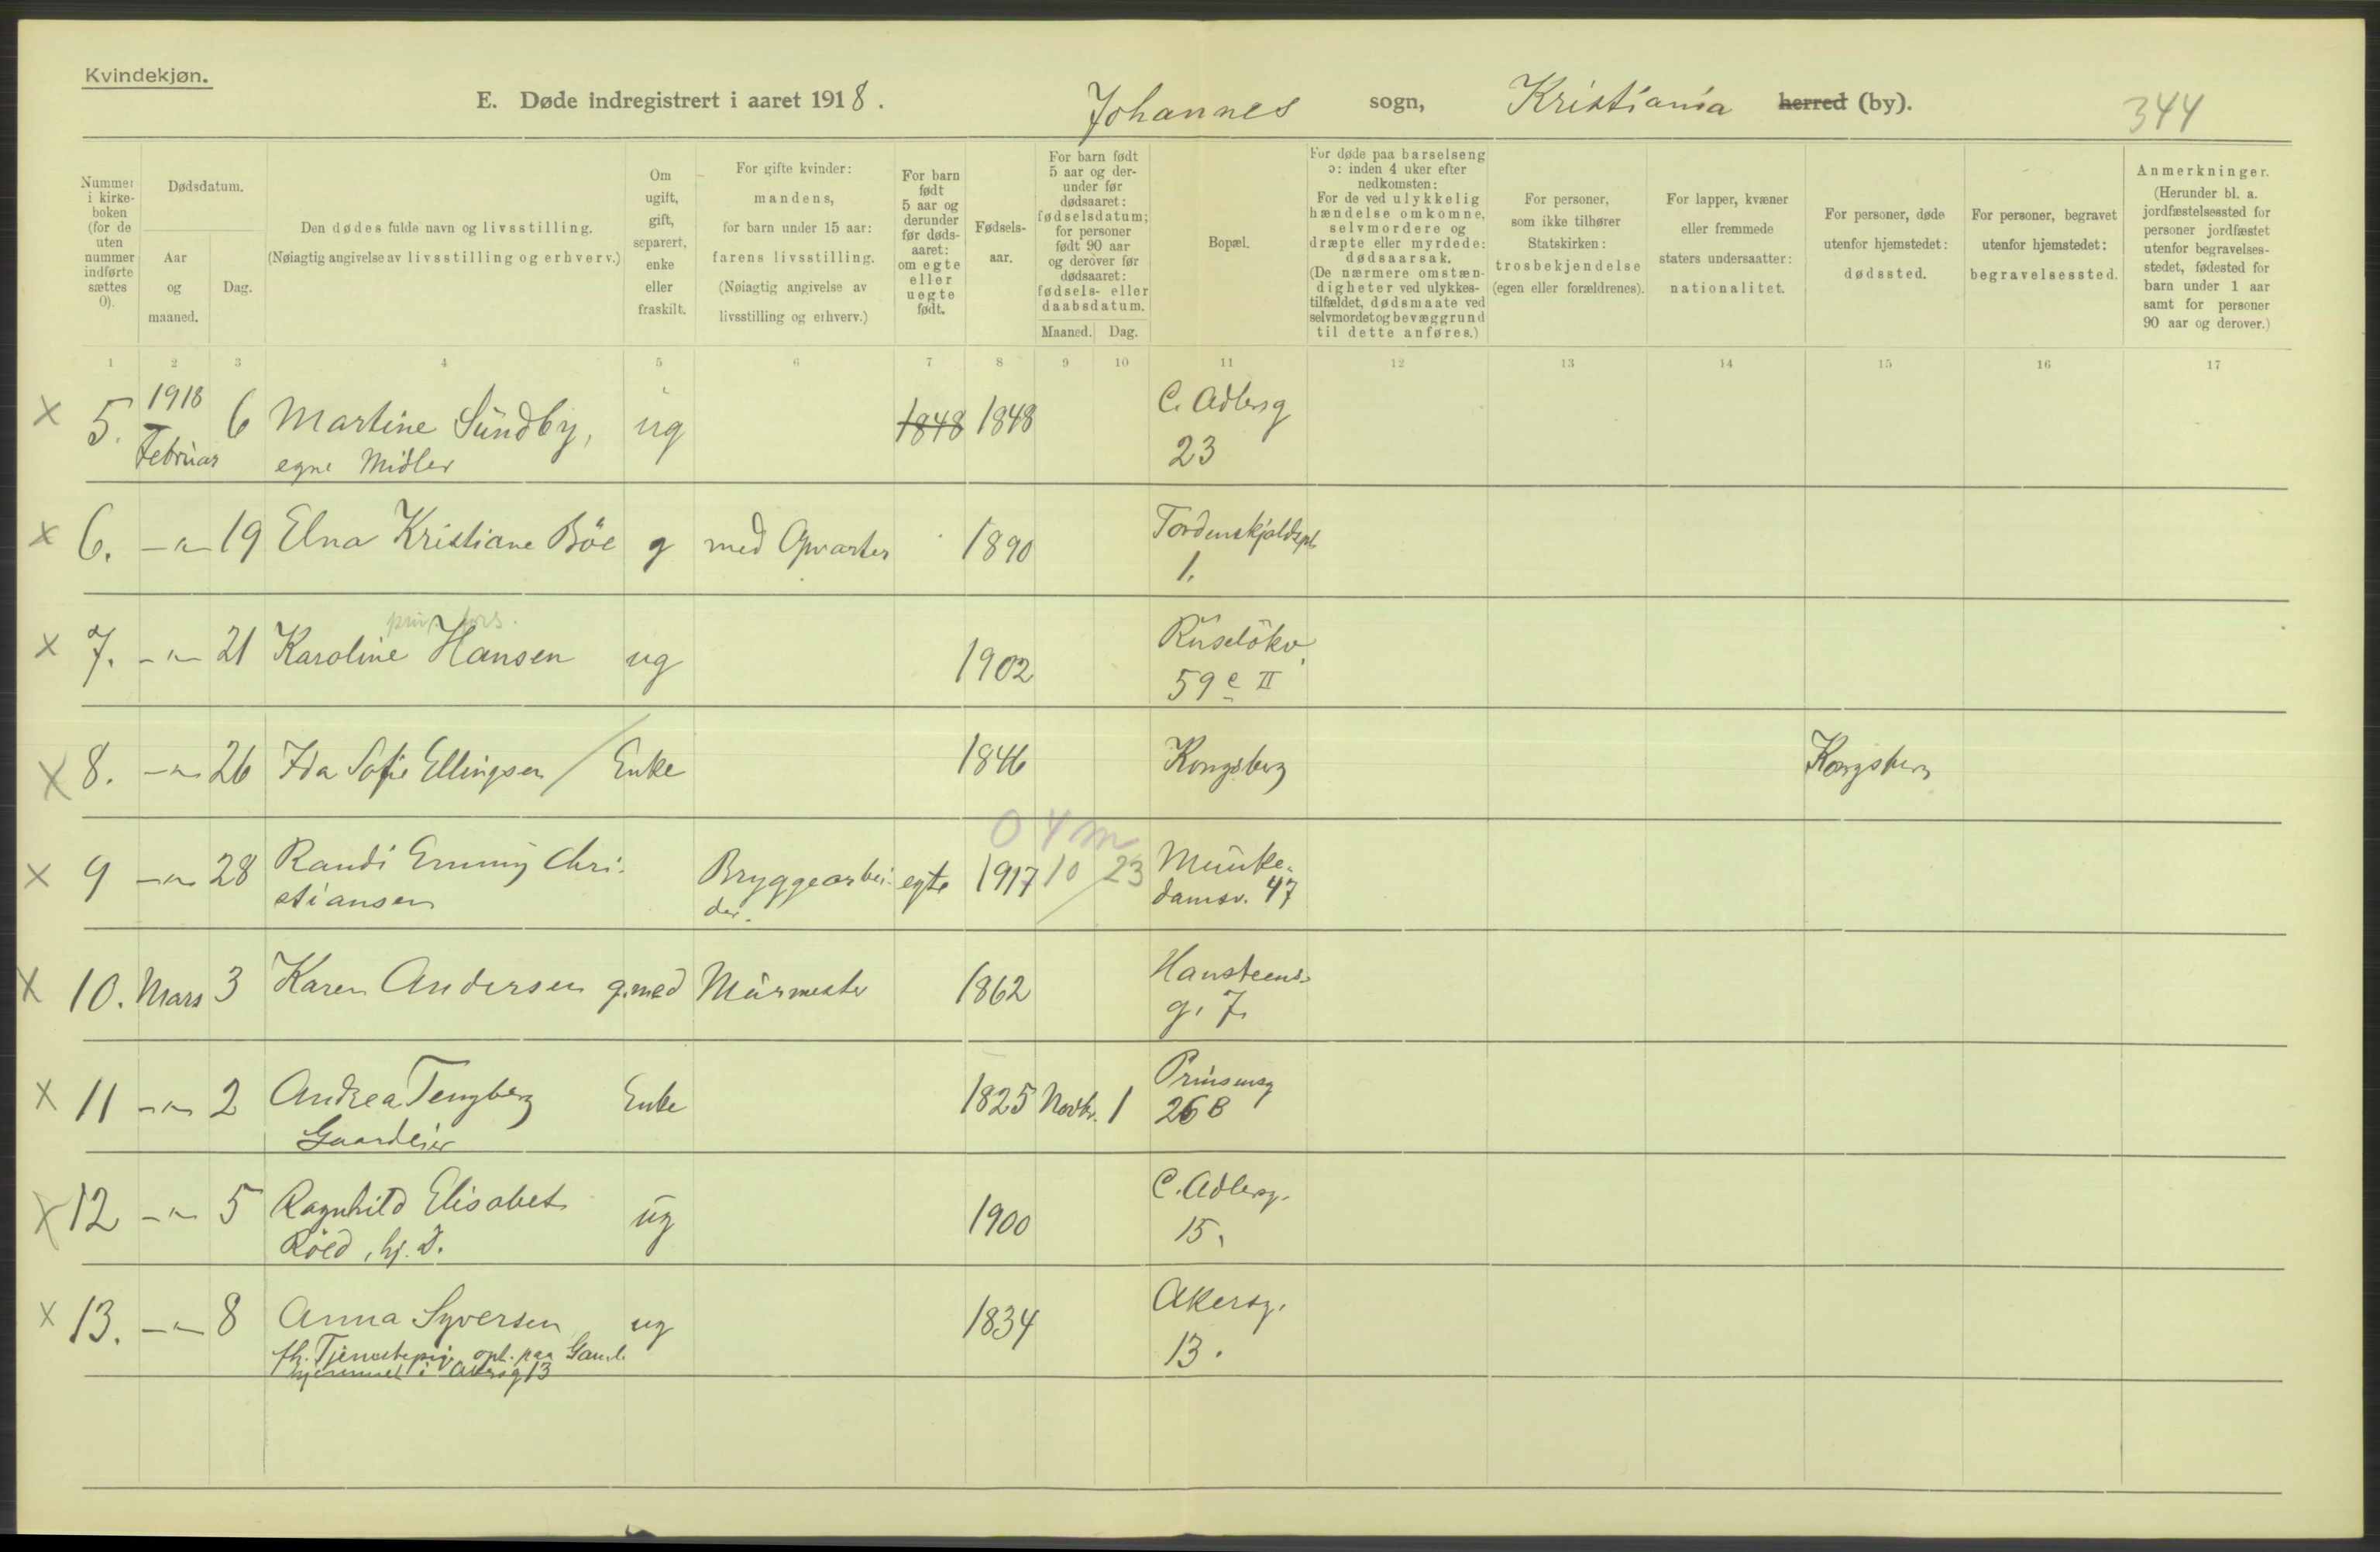 Kvindekjøn.
E. Døde indregistrert i aaret 1918. Johannes sogn, Kristiania herred (by).
344
Nummer i kirke-boken (for de uten nummer indførte sættes 0).
Dødsdatum.
Aar og maaned.
Dag.
Den dødes fulde navn og livsstilling.
(Nøiagtig angivelse av livsstilling og erhverv.)
Om ugift, gift, separert, enke eller fraskilt.
For gifte kvinder: mandens, for barn under 15 aar: farens livsstilling. (Nøiagtig angivelse av livsstilling og erhverv.)
For barn født 5 aar og derunder før døds-aaret: om egte eller uegte født.
Fødsels-aar.
For barn født 5 aar og der-under før dødsaaret: fødselsdatum; for personer født 90 aar og derover før dødsaaret: fødsels- eller daabsdatum.
Maaned. Dag.
Bopæl.
For døde paa barselseng ɔ: inden 4 uker efter nedkomsten: For de ved ulykkelig hændelse omkomne, selvmordere og dræpte eller myrdede: dødsaarsak. (De nærmere omstæn-digheter ved ulykkes-tilfældet, dødsmaate ved selvmordet og bevæggrund til dette anføres.)
For personer, som ikke tilhører Statskirken: trosbekjendelse (egen eller forældrenes).
For lapper, kvæner eller fremmede staters undersaatter: nationalitet.
For personer, døde utenfor hjemstedet: dødssted.
For personer, begravet utenfor hjemstedet: begravelsessted.
Anmerkninger. (Herunder bl. a. jordfæstelsessted for personer jordfæstet utenfor begravelses-stedet, fødested for barn under 1 aar samt for personer 90 aar og derover.)
1 2 3 4 5 6 7 8 9 10 11 12 13 14 15 16 17
1918
x 5. Februar 6 Martine Sundby, ug 1848 1848 C. Adlersg
egne Midler 23
x 6. -"- 19 Elna Kristiane Böe g med Opvarter 1890 Tordenskjoldspl.
1.
priv. fors.
x 7. -"- 21 Karoline Hansen ug 1902 Ruselökv.
59 c II
x 8. -"- 26 Ida Sofie Ellingsen / Enke 1846 Kongsberg Kongsberg
0 4 m
x 9 -"- 28 Randi Emmy Chri- Bryggearbei- egte 1917 10/23 Munke-
stiansen der. damsv. 47
x 10. Mars 3 Karen Andersen g. med Murmester 1862 Hansteens-
g. 7.
x 11 -"- 2 Andrea Tengberg Enke 1825 Novbr. 1 Prinsensg
Gaardeier 26 B
x 12 -"- 5 Ragnhild Elisabet ug 1900 C. Adlersg.
Röed, hj. D. 15.
x 13. -"- 8 Anna Syversen ug 1834 Akersg.
fh. Tjenestepige opt. paa Gaml. 13.
hjemmet i Akersg 13